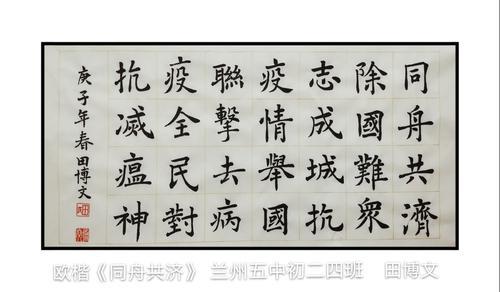 同舟共濟
除國難衆
志成城抗
疫情舉國
聯擊去病
疫全民對
抗滅瘟神
庚子年春田博文
欧楷《同舟共济》 兰州五中初二四班 田博文